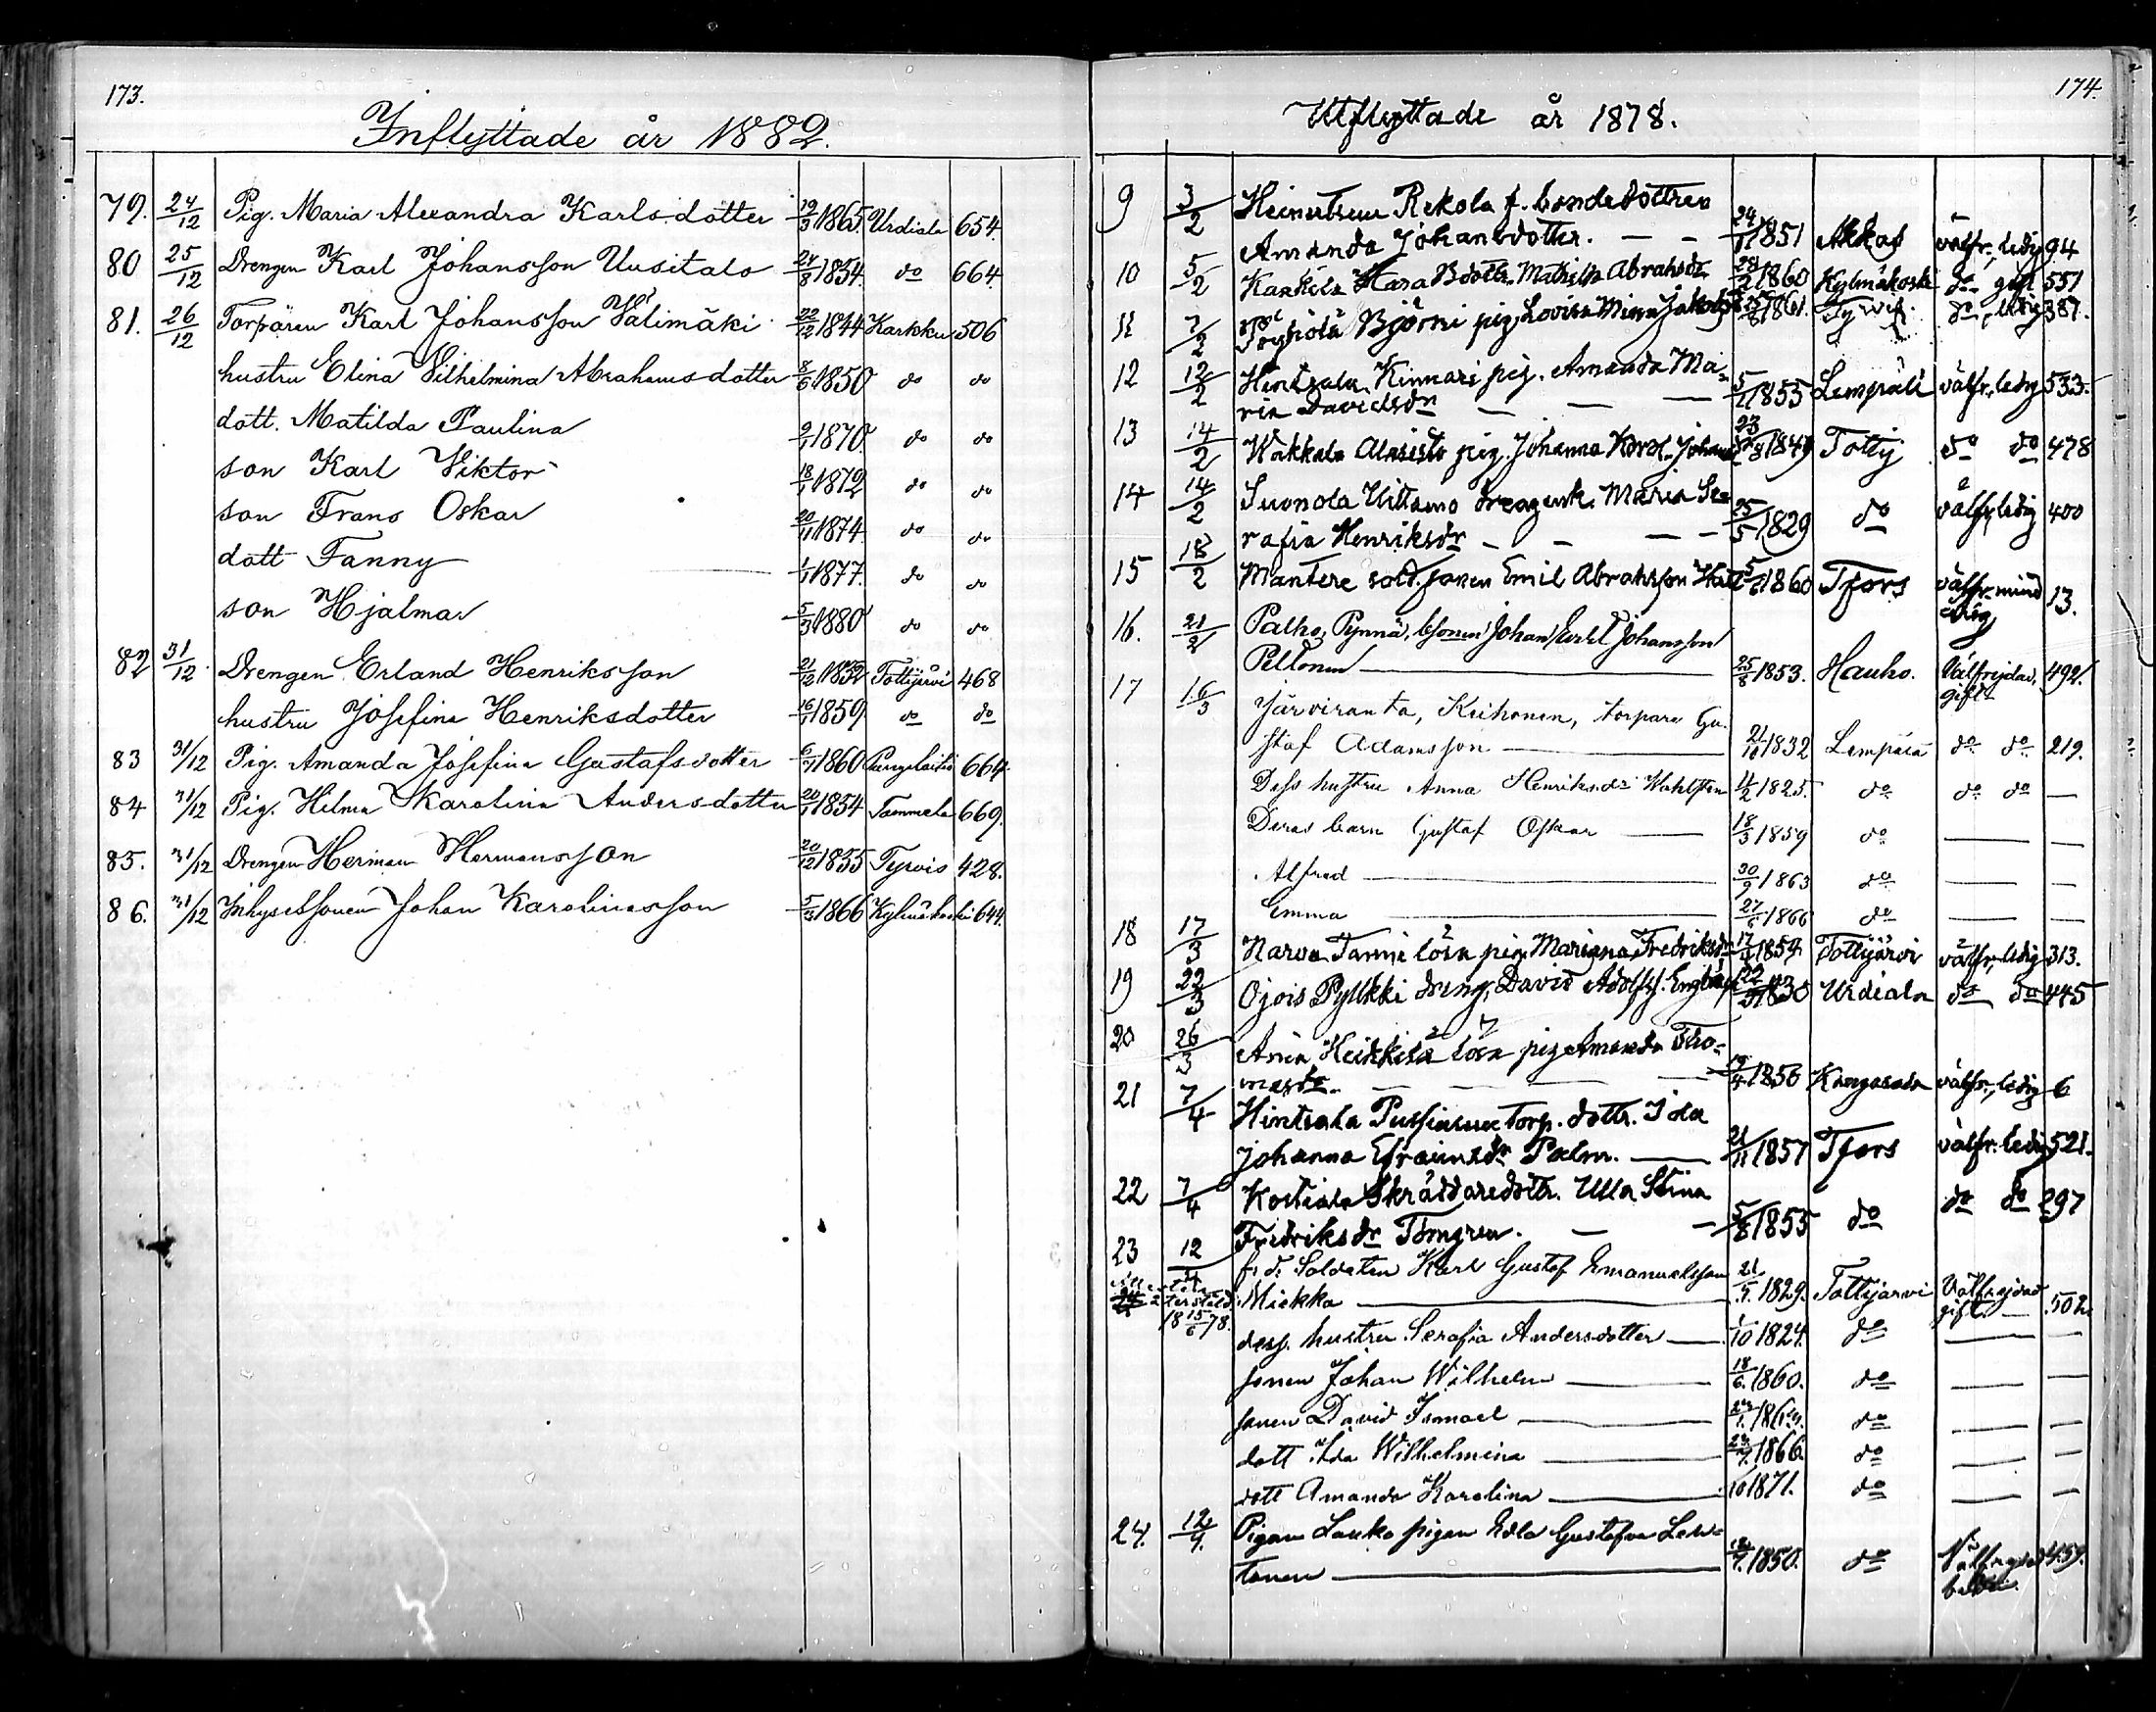 173.
Inflyttade år 1882.
79. 24/12 Pig. Maria Alexandra Karlsdotter 19/3 1865 Urdiala 654.
80 25/12 Drengen Karl Johansson Uusitalo 24/8 1854. do 664.
81. 26/12 Torparen Karl Johansson Välimäki 22/12 1844 Karkku 506
hustru Elina Vilhelmina Abrahamsdotter 8/6 1850 do do
dott. Matilda Paulina 9/1 1870. do do
son Karl Viktor 18/1 1872 do do
son Frans Oskar 20/11 1874 do do
dott Fanny 1/1 1877. do do
son Hjalmar 5/3 1880 do do
82 31/12. Drengen Erland Henriksson 21/12 1852 Tottijärvi 468
hustru Josefina Henriksdotter 16/1 1859 do do
83 31/12 Pig. Amanda Josefina Gustafsdotter 6/7 1860 664.
84 31/12 Pig. Hilma Karolina Andersdotter 20/1 1854 Tammela 669.
85. 31/12 Drengen Herman Hermansson 20/12 1855 Tyrvis 428.
86. 31/12 Inhysessonen Johan Karolinasson 5/3 1866 Kylmäkoski 644.
174.
Utflyttade år 1878.
9 3/2 Rekola f. bondedottren
Amanda Johansdotter. — — 24/11 1851 Akkas välfr., ledig 94
10 5/2 Kaakila Mathilda Abrahsdr 28/2 1860 Kylmäkoski do gift 551
11 7/2 Björni pig. Lovisa Minna 1861. Tyrvis. do, ledig 387.
12 12/2 Hintsala Kinnari pig. Amanda Ma-
ria Davidsdr — — — 5/1 1855 Lempäälä välfr., ledig 533.
13 14/2 Wakkala Alasisto pig. Johanna Karol. 23/8 1849 Tottij do do 478
14 14/2 Suonola Uittamo Maria Se-
rafia Henriksdr — — — 25/5 1829 do välfr, ledig 400
15 18/2 Mantere sold. sonen Emil Abrahsson 1860 Tfors välfr. mind
årig 13.
16. 21/2 Palho, Pynnä, bsonen Johan Johansson
Peltonen — 25/8 1853. Hauho. Välfrejdad, 492.
gift
17 16/3 Järviranta, Keihonen, torpare Gu-
staf Adamsson — 21/10 1832 Lempäälä do do 219.
Dess hustru Anna Henriksdr Wahlsten 4/2 1825. do do do —
Deras barn Gustaf Oskar — 18/3 1859 do — —
Alfred — 30/9 1863 do — —
Emma — 27/5 1866 do — —
18 17/3 Narva Tanni lösa pig. Mariana Fredriksdr 17/1 1859 Tottijärvi välfr., ledig 313.
19 22/3 Ojois Pylkki dreng, David 22/11 1830 Urdiala do do 445
20 26/3 Heikkilä lösa pig Amanda Tho-
masdr. — — — 19/4 1856 Kangasala välfr., ledig 6
21 7/4 Hintsala torp. dottr. Ida
Johanna Efraimsdr Palm. — 21/11 1857 Tfors välfr. ledig 521.
22 7/4 Kostiala Skräddaredottr. Ulla Stina
Fredriksdr Törngren. — — 5/8 1855 do do do 297
23 12/4 f. d. Soldaten Karl Gustaf Emanuelsson
Miekka — 21/7 1829. Tottijärvi Välfrejdad 502.
18 15/6 78. gift. —
dess. hustru Serafia Andersdotter — 1/10 1824. do — —
sonen Johan Wilhelm — 18/6. 1860. do — —
sonen David Ismael — do — —
dott Ida Wilhelmina — 1866. do — —
dott Amanda Karolina — 1871. do — —
24. 12/4. Lauko pigan Edla Gustafva Leh-
tonen — 1850. do Välfrejdad